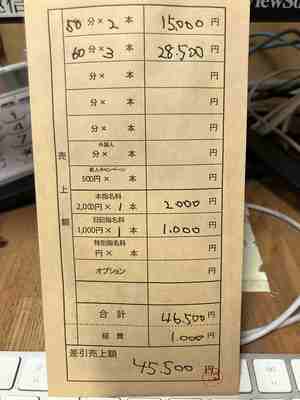 80分×2本 15,000円
60分×3本 28,500円
分×本 円
分×本 円
分×本 円
外国人
分×本 円
新人キャンペーン
500円×本 円
本指名料
2,000円×1本 2,000円
日記指名料
1,000円×1本 1,000円
特別指名料
円×本 円
オプション 円
売上額
合計 46,500円
経費 1,000円
差引売上額
45,500円